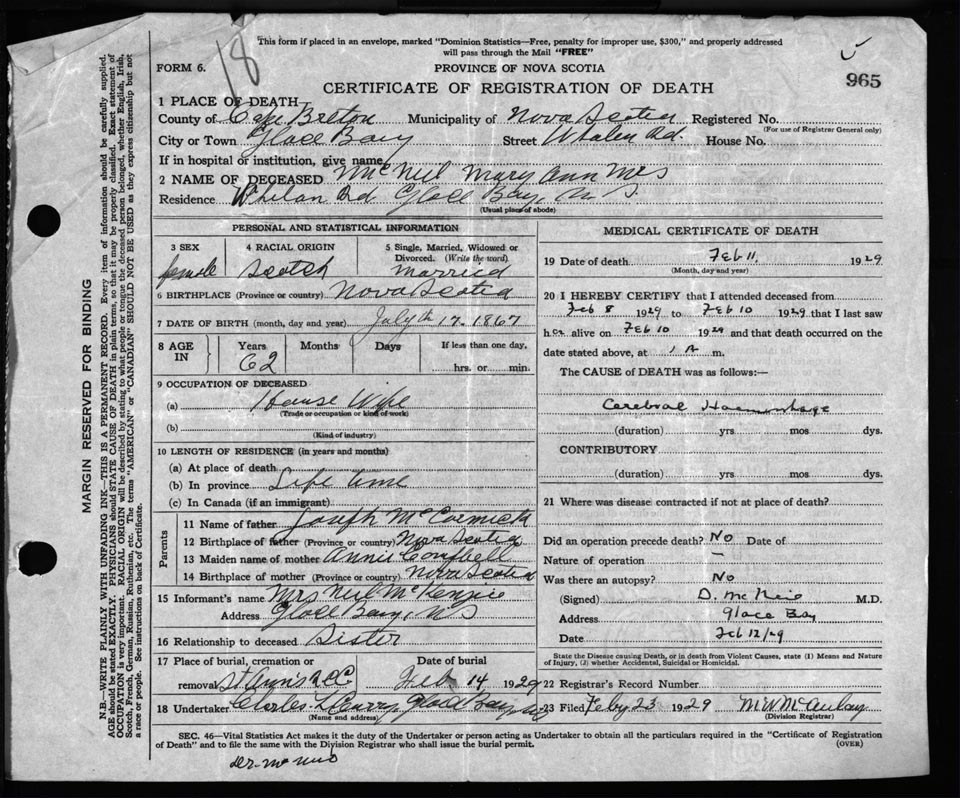 18
5
This form if placed in an envelope, marked "Dominion Statistics—Free, penalty for improper use, $300," and properly addressed
will pass through the Mail "FREE"
FORM 6.
PROVINCE OF NOVA SCOTIA
965
CERTIFICATE OF REGISTRATION OF DEATH
1 PLACE OF DEATH
County of Cape Breton Municipality of Nova Scotia Registered No.
(For use of Registrar General only)
City or Town Glace Bay Street Whalen Rd. House No.
If in hospital or institution, give name
2 NAME OF DECEASED McNeil Mary Ann Mrs
Residence Whelan Rd Glace Bay, N S.
(Usual place of abode)
PERSONAL AND STATISTICAL INFORMATION
3 SEX female
4 RACIAL ORIGIN Scotch
5 Single, Married, Widowed or
Divorced. (Write the word)
married
6 BIRTHPLACE (Province or country) Nova Scotia
7 DATE OF BIRTH (month, day and year) July th 17. 1867
8 AGE IN
Years 62 Months Days If less than one day,
hrs. or min.
9 OCCUPATION OF DECEASED
(a) House Wife
(Trade or occupation or kind of work)
(b)
(Kind of industry)
10 LENGTH OF RESIDENCE (in years and months)
(a) At place of death
(b) In province Life time
(c) In Canada (if an immigrant)
Parents
11 Name of father Joseph McCormick
12 Birthplace of father (Province or country) Nova Scotia
13 Maiden name of mother Annie Campbell
14 Birthplace of mother (Province or country) Nova Scotia
15 Informant's name Mrs Neil McKenzie
Address Glace Bay, N S
16 Relationship to deceased Sister
17 Place of burial, cremation or Date of burial
removal St Ann's Feb 14 1929
18 Undertaker Charles Glace Bay
(Name and address)
MEDICAL CERTIFICATE OF DEATH
19 Date of death Feb 11. 1929
(Month, day and year)
20 I HEREBY CERTIFY that I attended deceased from
Feb 8 1929 to Feb 10 1929 that I last saw
her alive on Feb 10 1929 and that death occurred on the
date stated above, at 1 A m.
The CAUSE of DEATH was as follows:—
Cerebral Haemorrhage
(duration) yrs mos dys.
CONTRIBUTORY
(duration) yrs. mos dys.
21 Where was disease contracted if not at place of death?
Did an operation precede death? No Date of
Nature of operation —
Was there an autopsy? No
(Signed) D. McNeil M.D.
Address Glace Bay
Date Feb 12/29
State the Disease causing Death, or in death from Violent Causes, state (1) Means and Nature
of Injury, (2) whether Accidental, Suicidal or Homicidal.
22 Registrar's Record Number
23 Filed Feby 23 1929 M W McAulay
(Division Registrar)
SEC. 46—Vital Statistics Act makes it the duty of the Undertaker or person acting as Undertaker to obtain all the particulars required in the "Certificate of Registration
of Death" and to file the same with the Division Registrar who shall issue the burial permit.
(OVER)
MARGIN RESERVED FOR BINDING
N.B.—WRITE PLAINLY WITH UNFADING INK—THIS IS A PERMANENT RECORD. Every item of information should be carefully supplied.
AGE should be stated EXACTLY. PHYSICIANS should STATE CAUSE OF DEATH in plain terms, so that it may be properly classified. Exact statement of
OCCUPATION is very important. RACIAL ORIGIN will be described by stating to what people or tongue the deceased person belonged, whether English, Irish,
Scotch, French, German, Russian, Ruthenian, etc. The terms "AMERICAN" or "CANADIAN" SHOULD NOT BE USED as they express citizenship but not
a race or people. See instructions on back of Certificate.